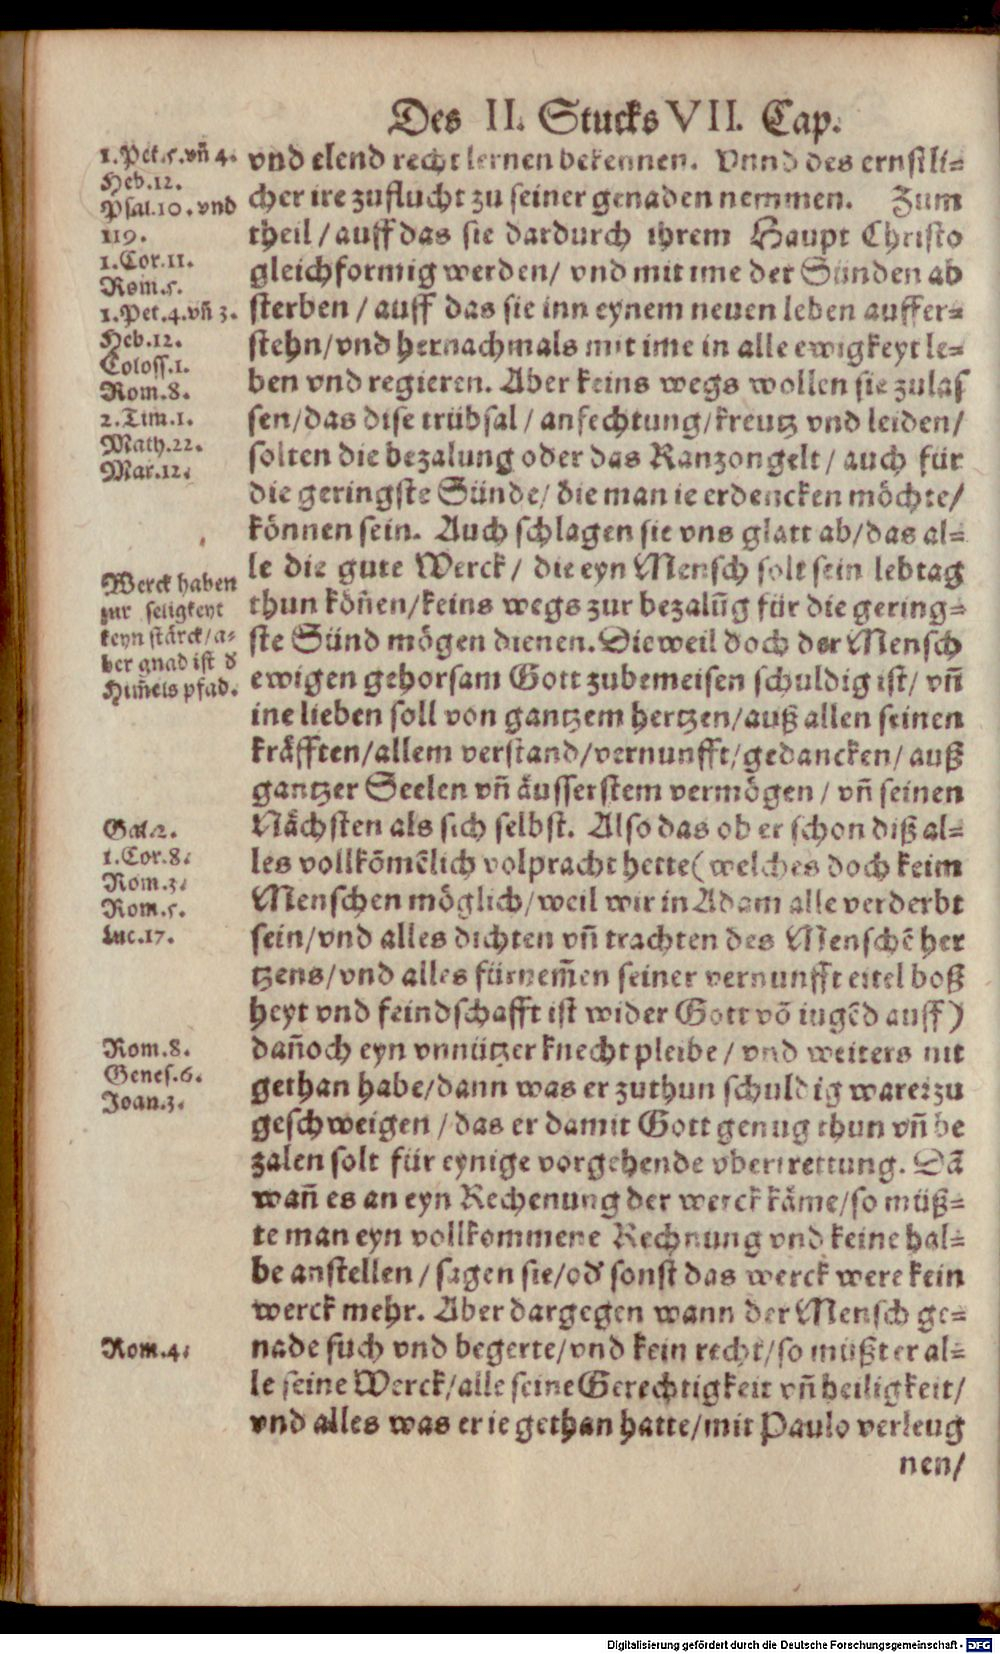 Des II. Stucks VII. Cap.
1. Pet. 5. vñ 4.
Heb. 12.
Psal. 10. vnd
119.
1. Cor. 11.
Rom. 5.
1. Pet. 4. vñ 3.
Heb. 12.
Coloss. 1.
Rom. 8.
2. Tim. 1.
Math. 22.
Mar. 12.
Werck haben
zur seligkeyt
keyn stärck/ a=
ber gnad ist d̕
Him̃els pfad.
Gal. 2.
1. Cor. 8.
Rom. 3.
Rom. 5.
Luc. 17.
Rom. 8.
Genes. 6.
Joan. 3.
Rom. 4.
vnd elend recht lernen bekennen. Vnnd des ernstli=
cher ire zuflucht zu seiner genaden nemmen. Zum
theil / auff das sie dardurch ihrem Haupt Christo
gleichformig werden/ vnd mit ime der Sünden ab
sterben / auff das sie inn eynem neuen leben auffer=
stehn/vnd hernachmals mit ime in alle ewigkeyt le=
ben vnd regieren. Aber keins wegs wollen sie zulas
sen/das dise trübsal / anfechtung/kreutz vnd leiden/
solten die bezalung oder das Ranzongelt / auch für
die geringste Sünde/ die man ie erdencken möchte/
können sein. Auch schlagen sie vns glatt ab/das al=
le die gute Werck / die eyn Mensch solt sein lebtag
thun köñen/keins wegs zur bezalũg für die gering=
ste Sünd mögen dienen. Dieweil doch der Mensch
ewigen gehorsam Gott zubemeisen schuldig ist/ vñ
ine lieben soll von gantzem hertzen/auß allen seinen
kräfften/allem verstand/vernunfft/gedancken/ auß
gantzer Seelen vñ äusserstem vermögen / vñ seinen
Nächsten als sich selbst. Also das ob er schon diß al=
les vollkõmẽlich volpracht hette(welches doch keim
Menschen möglich/weil wir in Adam alle verderbt
sein/vnd alles dichten vñ trachten des Menschẽ her
tzens/vnd alles fürnem̃en seiner vernunfft eitel boß
heyt vnd feindschafft ist wider Gott võ iugẽd auff)
dañoch eyn vnnützer knecht pleibe / vnd weiters nit
gethan habe/dann was er zuthun schuldig ware: zu
geschweigen /das er damit Gott genug thun vñ be
zalen solt für eynige vorgehende vbertrettung. Dã
wañ es an eyn Rechenung der werck käme/so müß=
te man eyn vollkommene Rechnung vnd keine hal=
be anstellen / sagen sie/od̕ sonst das werck were kein
werck mehr. Aber dargegen wann der Mensch ge=
nade such vnd begerte/vnd kein recht/so müßt er al=
le seine Werck/alle seine Gerechtigkeit vñ heiligkeit/
vnd alles was er ie gethan hatte/mit Paulo verleug
nen/
Digitalisierung gefördert durch die Deutsche Forschungsgemeinschaft - DFG